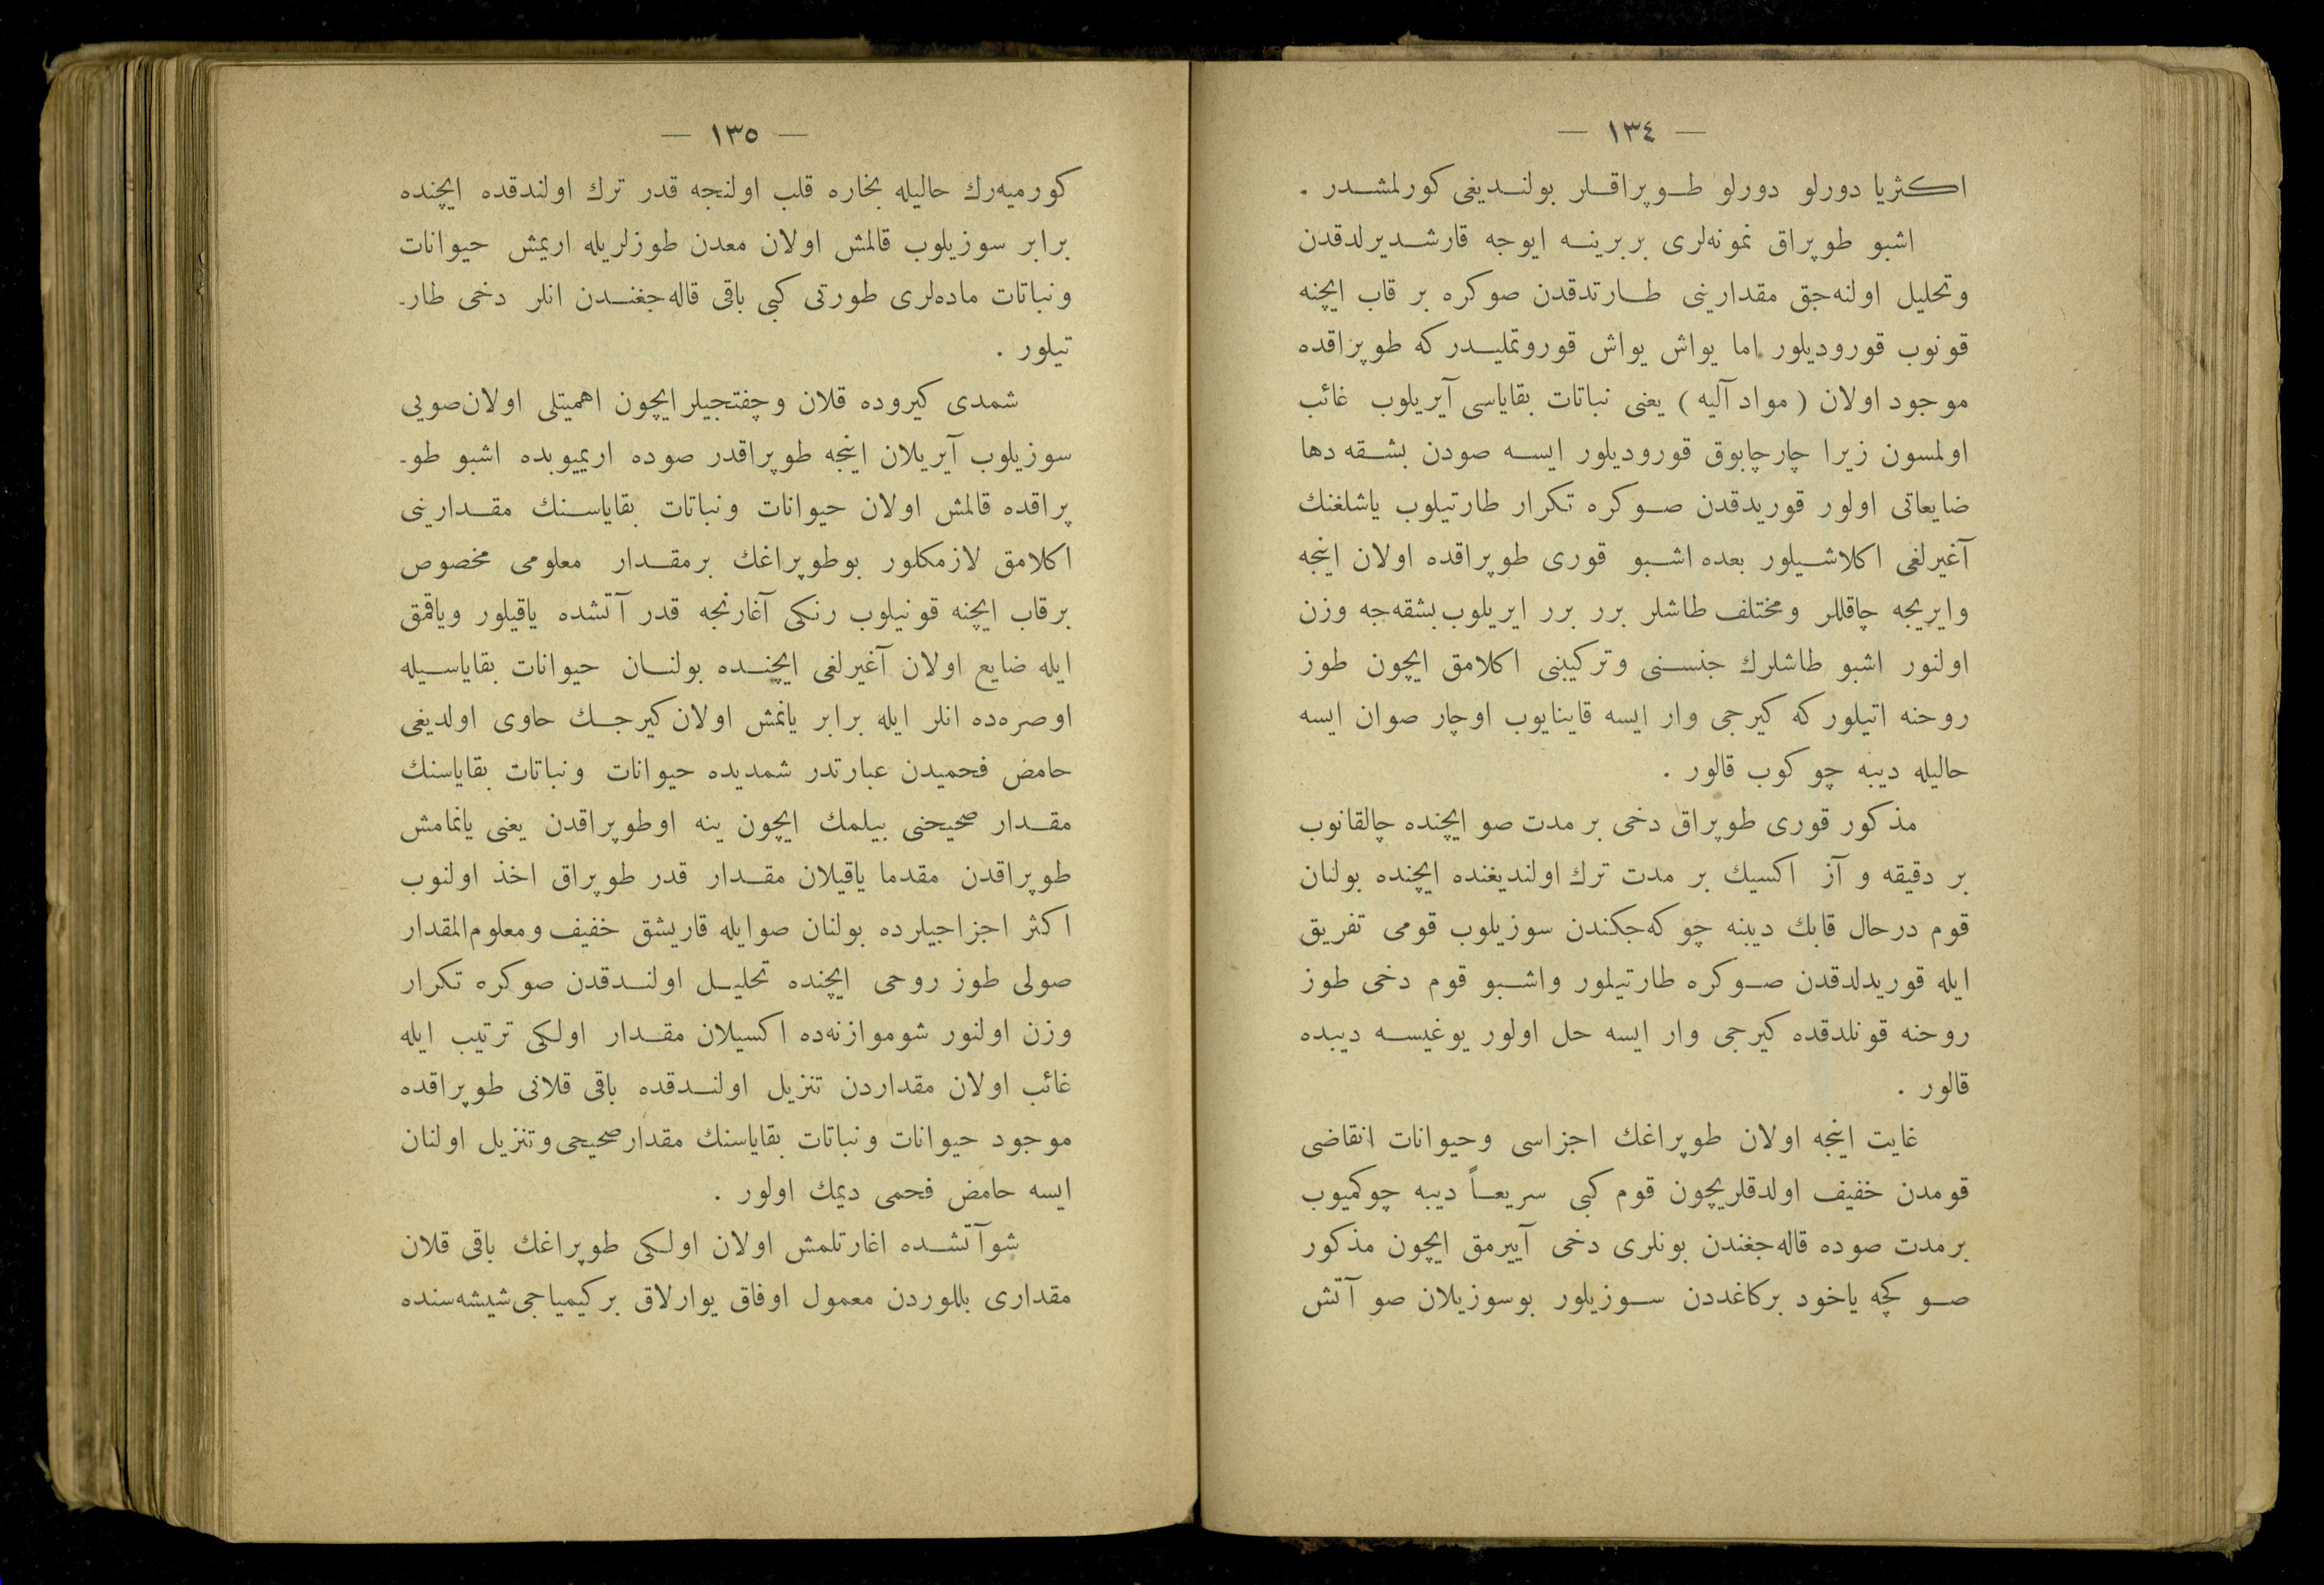 — ١٣٤ —
اكثريا دورلو دورلو طوپراقلر بولنديغى كورلمشدر .
اشبو طوپراق نمونه‌لرى بربرينه ايوجه قارشديرلدقدن
وتحليل اولنه‌جق مقدارينى طارتدقدن صوكره بر قاب ايچنه
قونوب قوروديلور اما يواش يواش قوروتمليدر كه طوپراقده
موجود اولان ( مواد آليه ) يعنى نباتات بقاياسى آيريلوب غائب
اولمسون زيرا چارچابوق قوروديلور ايسه صودن بشقه دها
ضايعاتى اولور قوريدقدن صوكره تكرار طارتيلوب ياشلغنك
آغيرلغى اكلاشيلور بعده اشبو قورى طوپراقده اولان اينجه
وايريجه چاقللر ومختلف طاشلر برر برر ايريلوب بشقه‌جه وزن
اولنور اشبو طاشلرك جنسنى وتركيبنى اكلامق ايچون طوز
روحنه اتيلور كه كيرجى وار ايسه قاينايوب اوچار صوان ايسه
حاليله ديبه چوكوب قالور .
مذكور قورى طوپراق دخى بر مدت صو ايچنده چالقانوب
بر دقيقه و آز اكسيك بر مدت ترك اولنديغنده ايچنده بولنان
قوم درحال قابك ديبنه چوكه‌جكندن سوزيلوب قومى تفريق
ايله قوريدلدقدن صوكره طارتيلور واشبو قوم دخى طوز
روحنه قونلدقده كيرجى وار ايسه حل اولور يوغيسه ديبده
قالور .
غايت اينجه اولان طوپراغك اجزاسى وحيوانات انقاضى
قومدن خفيف اولدقلريچون قوم كبى سريعاً ديبه چوكميوب
برمدت صوده قاله‌جغندن بونلرى دخى آييرمق ايچون مذكور
صو كچه ياخود بركاغددن سوزيلور بوسوزيلان صو آتش
— ١٣٥ —
كورميه‌رك حاليله بخاره قلب اولنجه قدر ترك اولندقده ايچنده
برابر سوزيلوب قالمش اولان معدن طوزلريله اريمش حيوانات
ونباتات ماده‌لرى طورتى كبى باقى قاله‌جغندن انلر دخى طار-
تيلور .
شمدى كيروده قلان وچفتجيلر ايچون اهميتلى اولان صويى
سوزيلوب آيريلان اينجه طوپراقدر صوده اريميوبده اشبو طو-
پراقده قالمش اولان حيوانات ونباتات بقاياسنك مقدارينى
اكلامق لازمكلور بوطوپراغك برمقدار معلومى مخصوص
برقاب ايچنه قونيلوب رنكى آغارنجه قدر آتشده ياقيلور وياقمق
ايله ضايع اولان آغيرلغى ايچنده بولنان حيوانات بقاياسيله
اوصره‌ده انلر ايله برابر يانمش اولان كيرجك حاوى اولديغى
حامض فحميدن عبارتدر شمديده حيوانات ونباتات بقاياسنك
مقدار صحيحنى بيلمك ايچون ينه اوطوپراقدن يعنى يانمامش
طوپراقدن مقدما ياقيلان مقدار قدر طوپراق اخذ اولنوب
اكثر اجزاجيلرده بولنان صوايله قاريشق خفيف ومعلوم‌المقدار
صولى طوز روحى ايچنده تحليل اولندقدن صوكره تكرار
وزن اولنور شوموازنه‌ده اكسيلان مقدار اولكى ترتيب ايله
غائب اولان مقداردن تنزيل اولندقده باقى قلانى طوپراقده
موجود حيوانات ونباتات بقاياسنك مقدار صحيحى وتنزيل اولنان
ايسه حامض فحمى ديمك اولور .
شوآتشده اغارتلمش اولان اولكى طوپراغك باقى قلان
مقدارى بللوردن معمول اوفاق يوارلاق بركيمياجى شيشه‌سنده